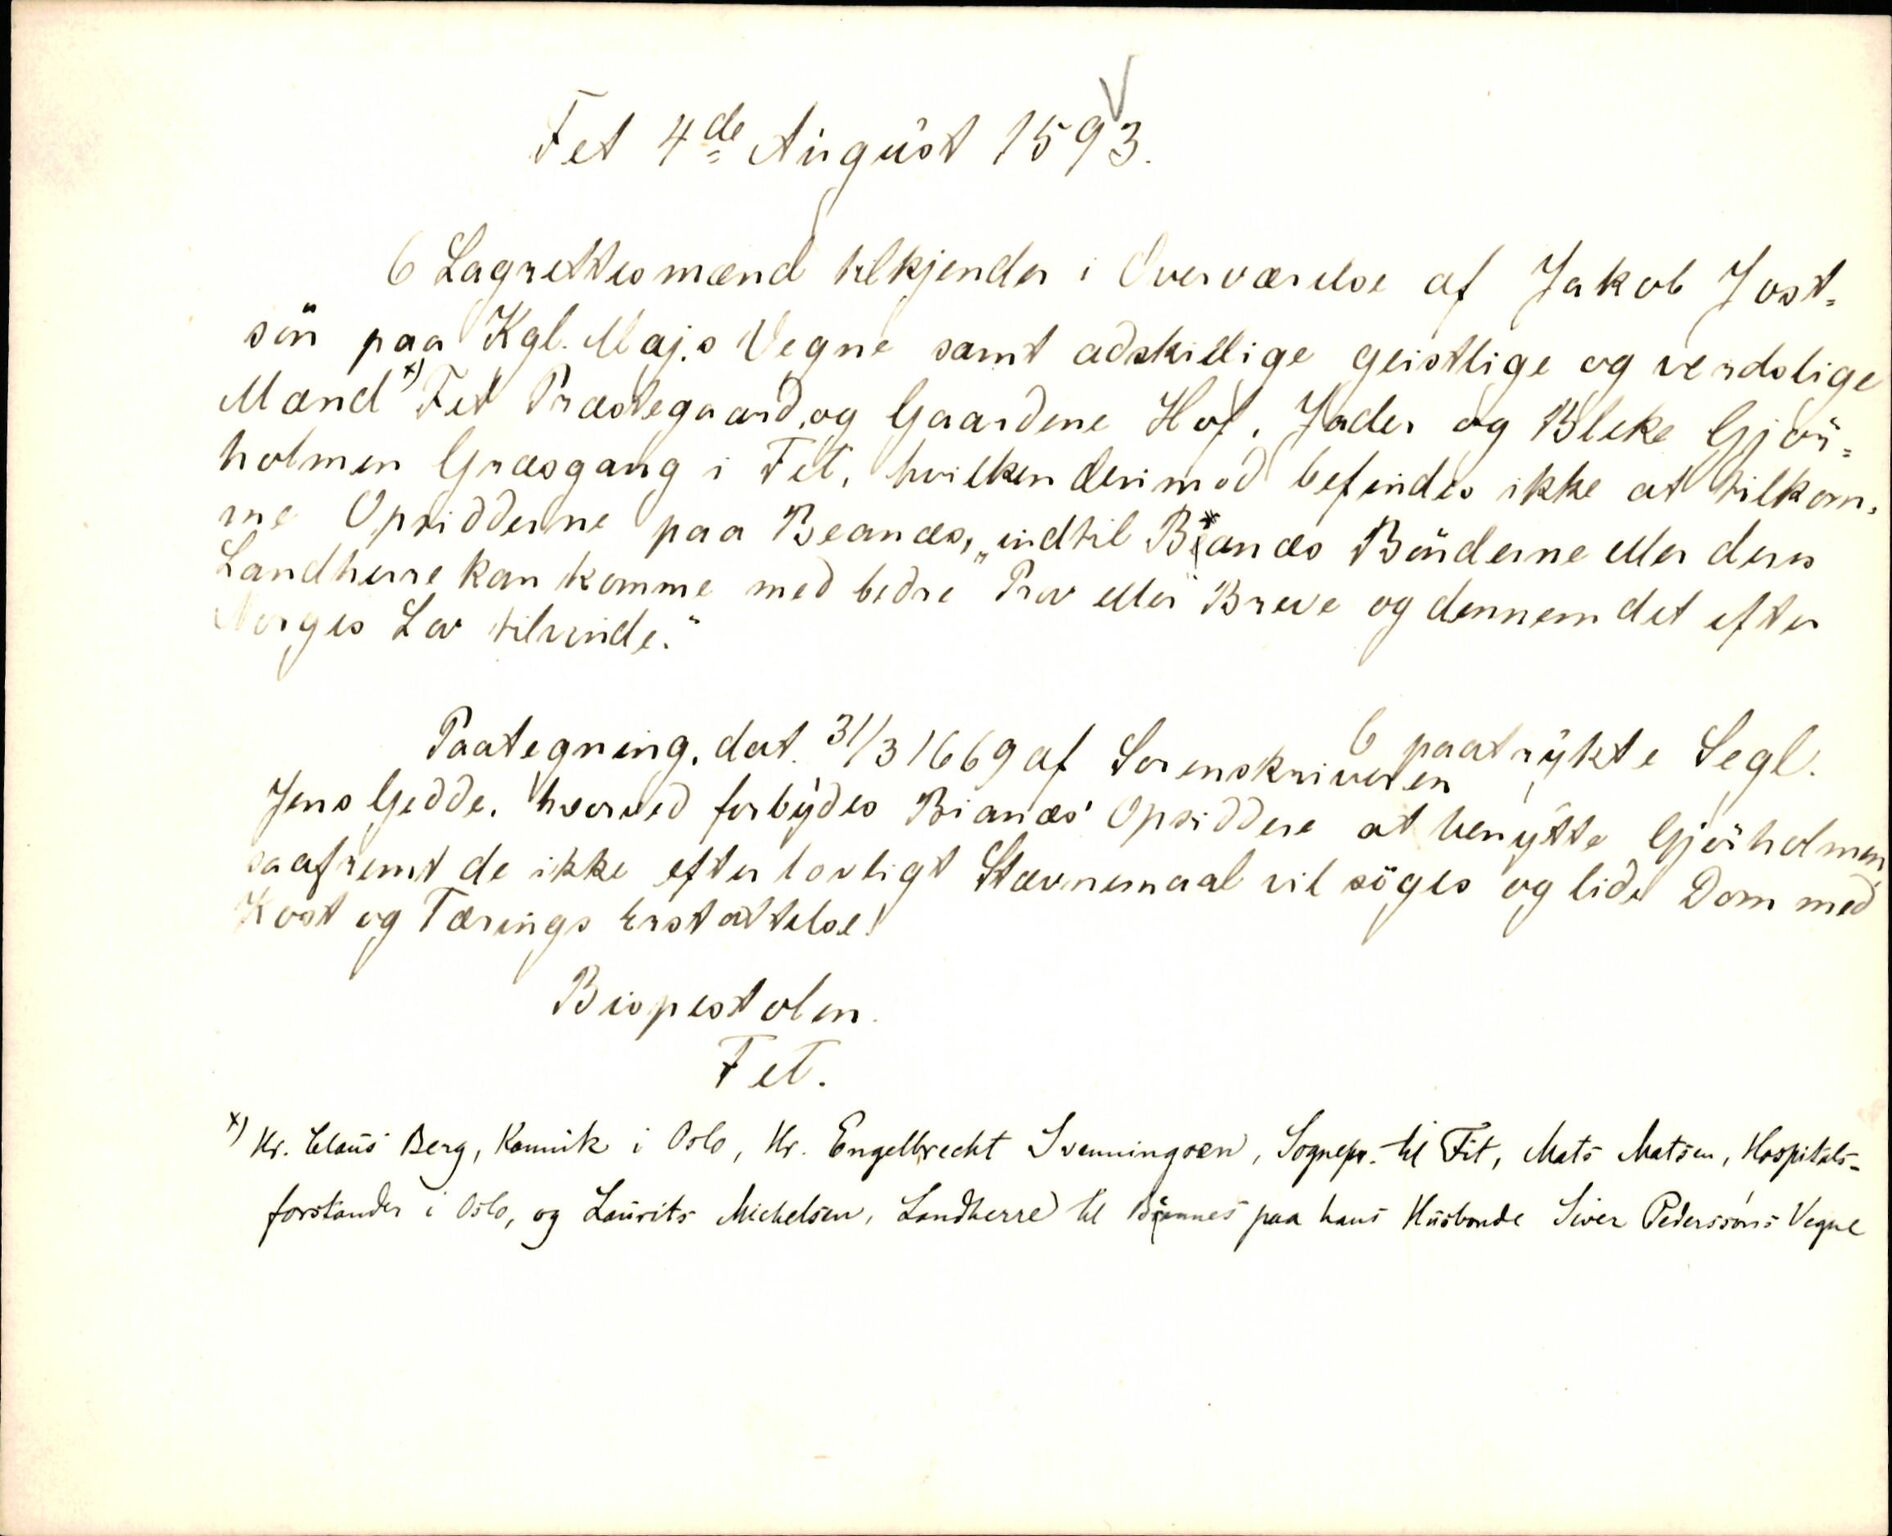 Fet 4de August 1593.
6 Lagrettesmænd tilkjender i Overværelse af Jakob Jost-
sön paa Kgl. Maj.s Vegne samt adskillige geistlige og verdslige
Mænd x) Fet Præstegaard, og Gaardene Hof, Jader og Bleke Gjör-
holmen Græsgang i Fet, hvilken derimod befindes ikke at tilkom-
me Opsidderne paa Beanæs, „indtil Bianæs Bönderne eller deres
Landherre kan komme med bedre Prov eller Breve og dennem det efter
Norges Lov tilvinde.“
6 paatrykte Segl.
Paategning, dat. 31/3 1669 af Sorenskriveren
Jens Gedde, hvorved forbydes Bianæs' Opsiddere at benytte Gjörholmen,
saafremt de ikke efter lovligt Stævnemaal vil söges og lide Dom med
Kost og Tærings Erstattelse.
Bispestolen.
Fet.
x) Hr. Claus Berg, Kannik i Oslo, Hr. Engelbrecht Svenningsen, Sognepr. til Fet, Mats Matsen, Hospitals-
forstander i Oslo, og Laurits Michelsen, Landherre til paa hans Husbonde Siver Pederssöns Vegne